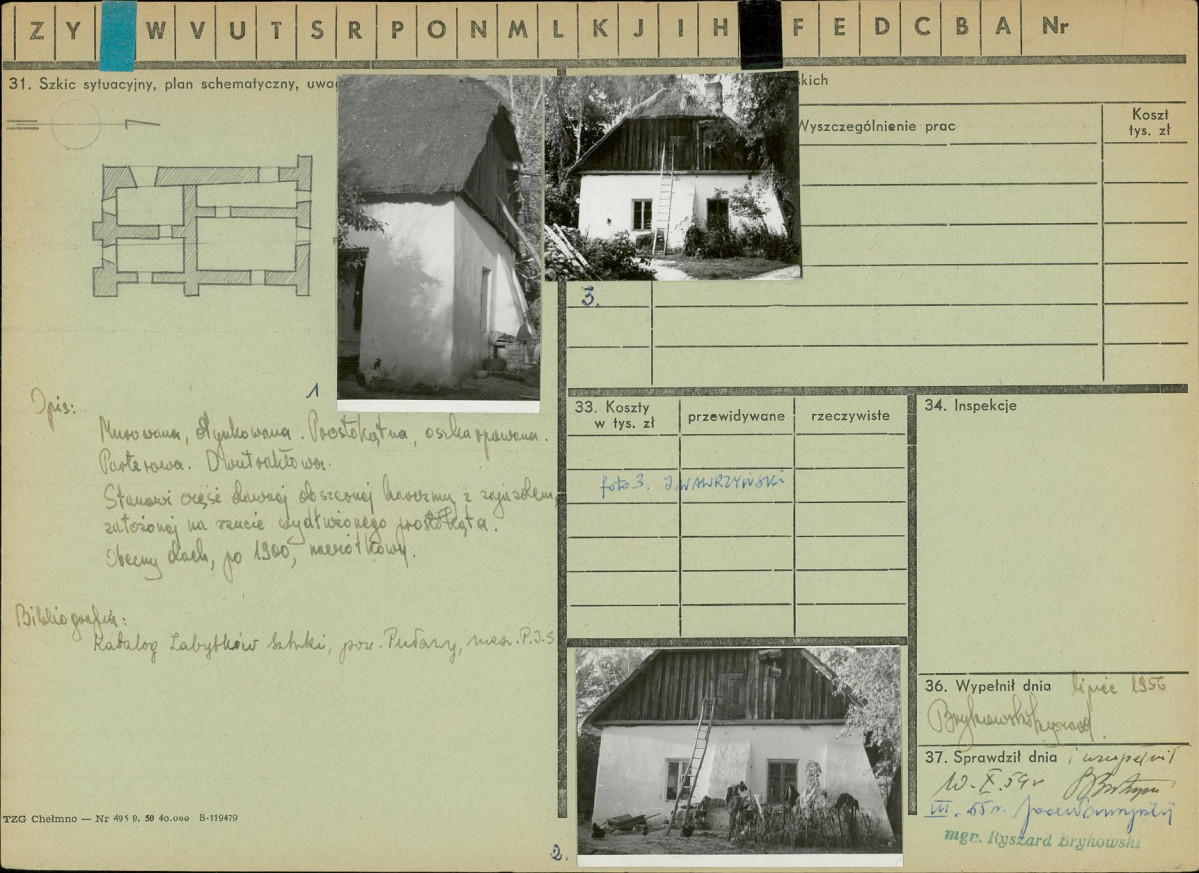 Z Y W V U T S R P O N M L K J I H F E D C B A Nr
31. Szkic sytuacyjny, plan schematyczny, uwa
skich
Wyszczególnienie prac
Koszt
tys. zł
1
3.
Opis:
Murowana, otynkowana. Prostokątna, oszkarpowana.
Parterowa. Dwutraktowa.
Stanowi część dawnej obszernej karczmy z zajazdem,
założonej na rzucie wydłużonego prostokąta.
Obecny dach, po 1900,
Bibliografia:
Katalog Zabytków Sztuki, pow. Puławy, P.I.S
33. Koszty
w tys. zł
przewidywane
rzeczywiste
foto 3. J. WAWRZYŃSKI
34. Inspekcje
36. Wypełnił dnia lipiec 1956
Brykowski Ryszard
37. Sprawdził dnia i uzupełnił
10. X. 59 r
mgr. Ryszard Brykowski
2.
TZG Chełmno — Nr 495 9. 50 40.000 B-119479